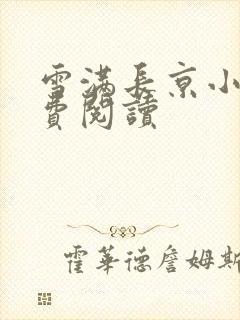 雪满长京小
费閱讀
霍華德詹姆斯